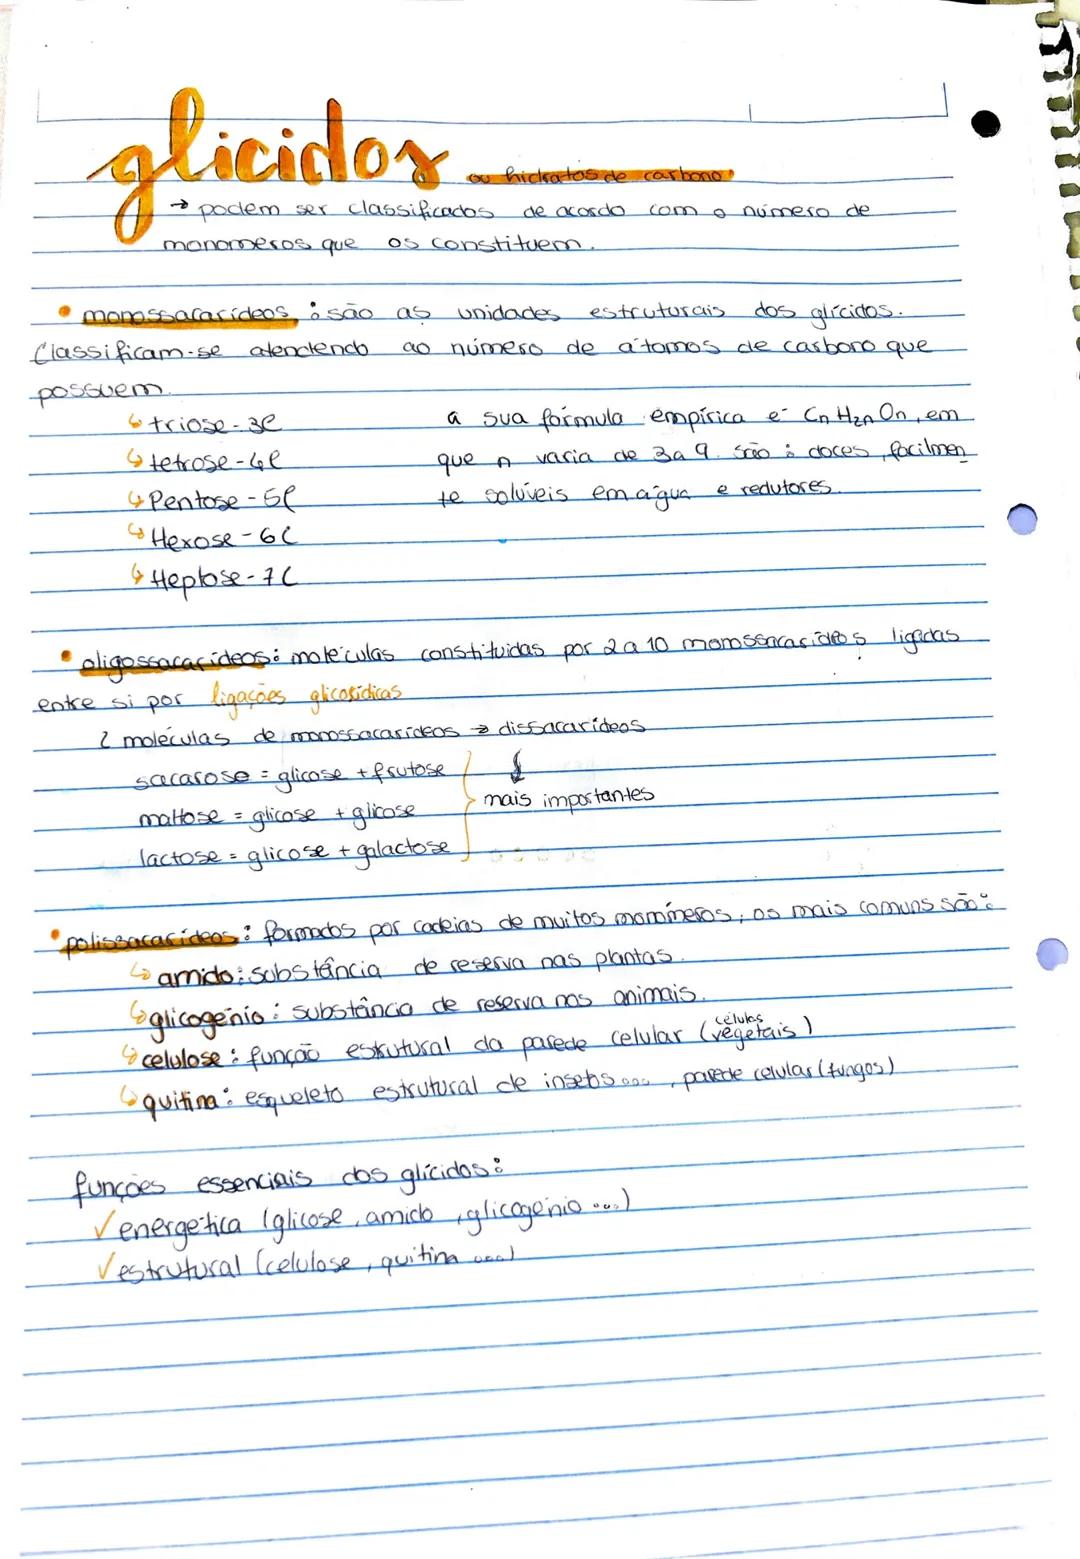 glicidos ou hidratos de carbono
→ podem ser classificados de acordo com o número de
monomeros que os constituem.
• monossacarídeos : são as unidades estruturais dos glícidos.
Classificam-se atendendo ao número de átomos de carbono que
possuem.
↳ triose - 3C
↳ tetrose - 4C
↳ Pentose - 5C
↳ Hexose - 6C
↳ Heptose - 7C
a sua fórmula empírica é CnH2nOn, em
que n varia de 3 a 9. São : doces, facilmen
te solúveis em água e redutores.
• oligossacarídeos : moléculas constituidas por 2 a 10 monossacarídeos ligadas
entre si por ligações glicosídicas
2 moléculas de monossacarídeos → dissacarídeos
sacarose = glicose + frutose
maltose = glicose + glicose
lactose = glicose + galactose
↓
mais importantes
• polissacarídeos : formados por cadeias de muitos monómeros, os mais comuns são :
↳ amido : substância de reserva nas plantas.
↳ glicogénio : substância de reserva nos animais.
↳ celulose : função estrutural da parede celular (células vegetais)
↳ quitina : esqueleto estrutural de insetos ..., parede celular (fungos)
funções essenciais dos glícidos :
✓ energética (glicose, amido, glicogénio ...)
✓ estrutural (celulose, quitina ...)